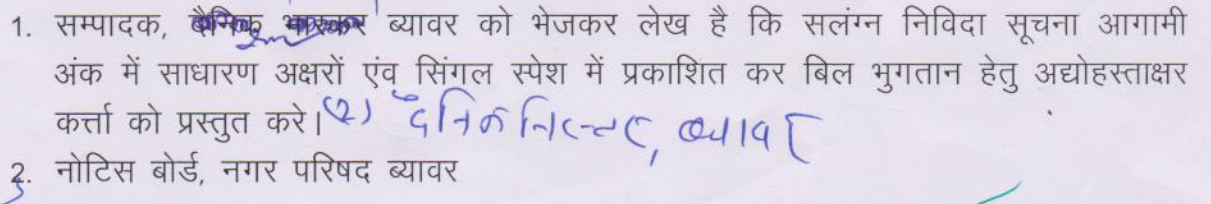 1. सम्पादक, दैनिक भास्कर ब्यावर को भेजकर लेख है कि सलंग्न निविदा सूचना आगामी
अंक में साधारण अक्षरों एंव सिंगल स्पेश में प्रकाशित कर बिल भुगतान हेतु अद्योहस्ताक्षर
कर्त्ता को प्रस्तुत करे। (2) दैनिक निरन्तर, ब्यावर
2. नोटिस बोर्ड, नगर परिषद ब्यावर